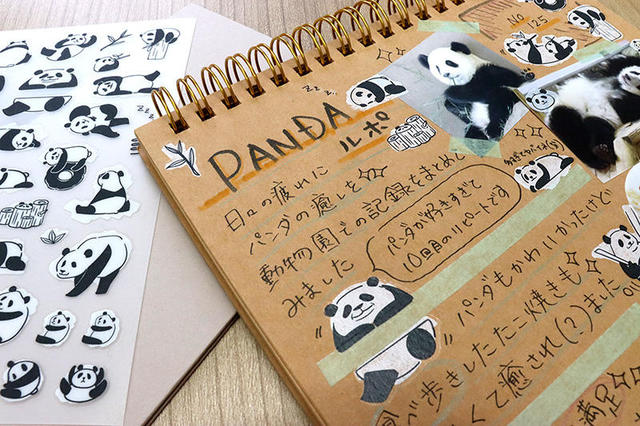 No. 125
PANDA
ルポ
日々の疲れに
パンダの癒しを
動物園での記録をまとめて
みました
パンダが好きすぎて
10回目のリピートです
パンダもかわいかったけど
べ歩きしたたこ焼きも
くて癒され(?)ました
満足
zzz